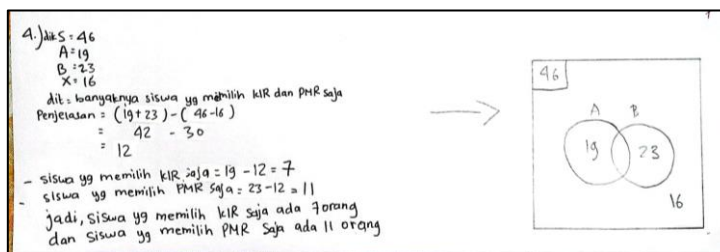 4.) dik S = 46
A = 19
B = 23
X = 16
dit = banyaknya siswa yg memilih KIR dan PMR saja
Penjelasan = (19+23) - (46-16)
= 42 - 30
= 12
- siswa yg memilih KIR saja = 19 - 12 = 7
- siswa yg memilih PMR saja = 23 - 12 = 11
jadi, siswa yg memilih KIR saja ada 7 orang
dan siswa yg memilih PMR saja ada 11 orang
46
A B
19 23
16